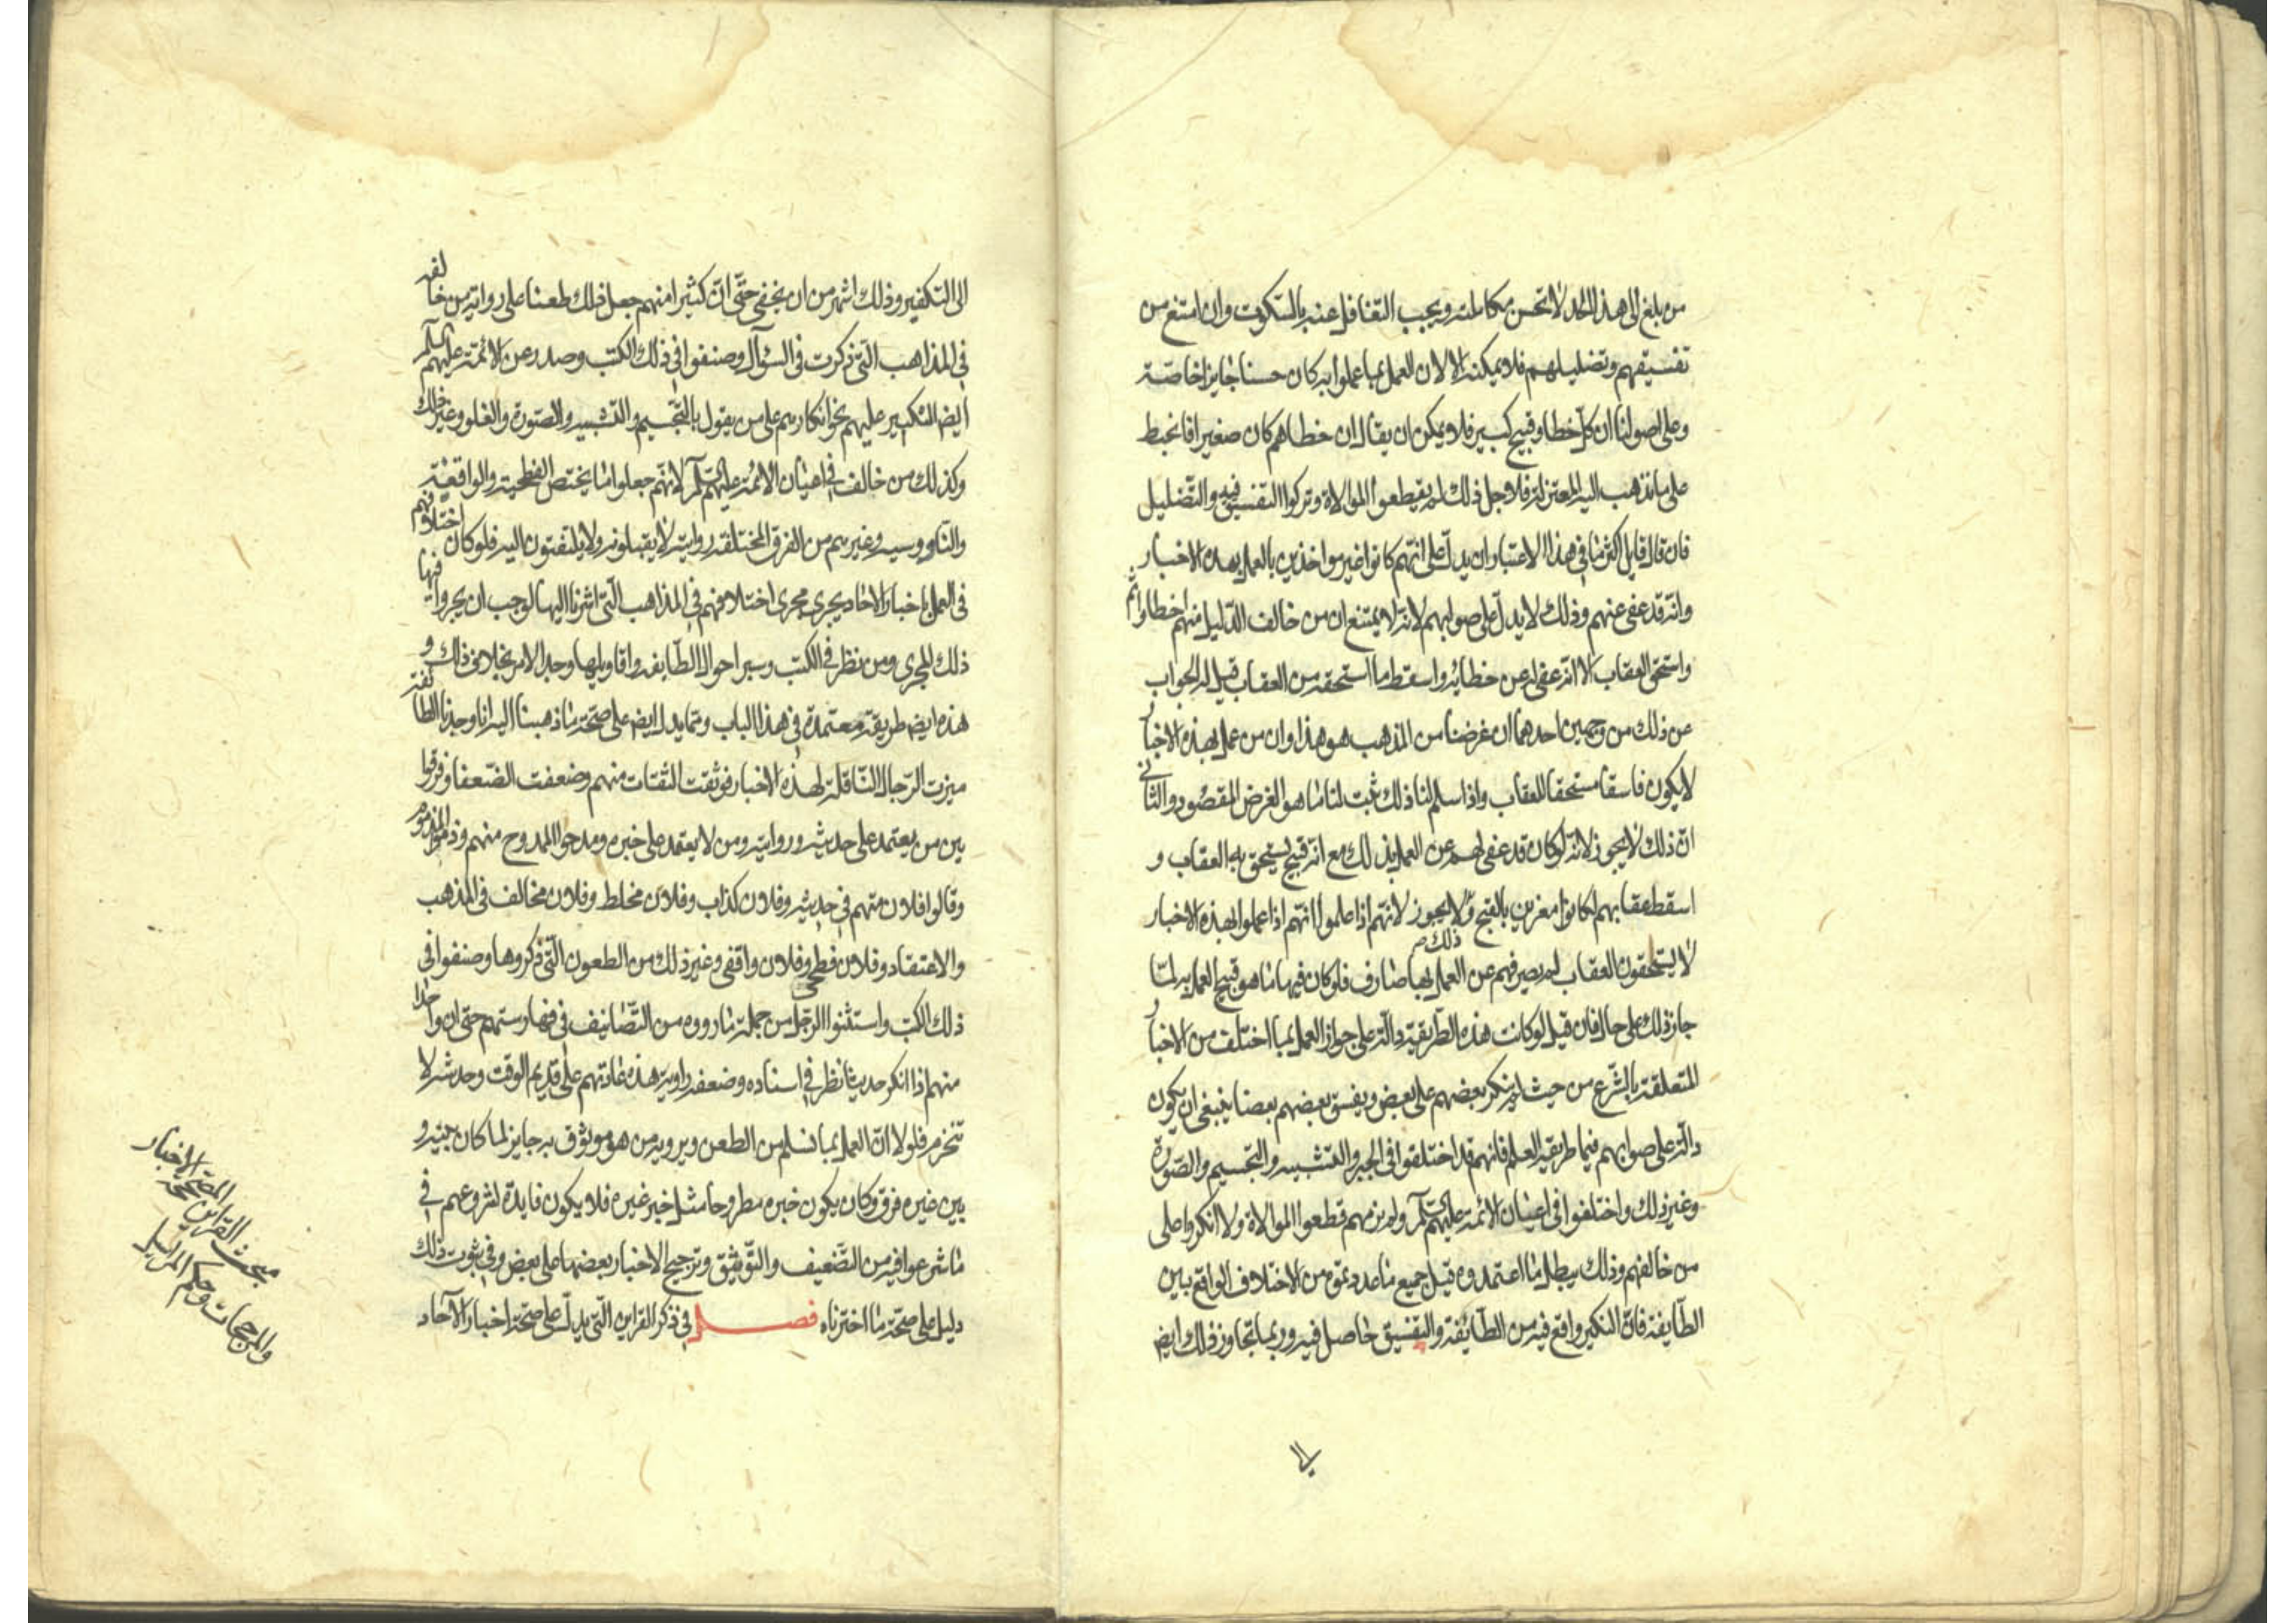 من بلغ الى هذا الحد لا تحسن مكالمته ويجب التغافل عنه بالسكوت وان امتنع من
تفسيقهم وتضليلهم فلا يمكنه الا لان العمل بما عملوا به كان حسنا جايزا خاصة
وعلى اصولنا ان كل خطا وقبيح كبير فلا يمكن ان يقال ان خطاهم كان صغيرا فانحبط
على ما تذهب اليه المعتزلة فلاجل ذلك لم يقطعوا الموالاة وتركوا التفسيق فيه والتضليل
فان قال قايل اكثر ما في هذا الاعتبار ان يدل على انهم كانوا غير مواخذين بالعمل بهذه الاخبار
وانه قد عفى عنهم وذلك لا يدل على صوابهم لانه لا يمتنع ان من خالف الدليل منهم اخطا واثم
واستحق العقاب الا انه عفى له عن خطائه واسقط ما استحقه من العقاب قيل له الجواب
عن ذلك من وجهين احدهما ان غرضنا من المذهب هو هذا وان من عمل بهذه الاخبار
لا يكون فاسقا مستحقا للعقاب واذا سلم لنا ذلك ثبت لنا ما هو الغرض المقصود والثاني
ان ذلك لا يجوز لانه لو كان قد عفى لهم عن العمل بذلك مع انه قبيح يستحق به العقاب و
اسقط عقابهم لكانوا مغرين بالقبيح ولا يجوز لانهم اذا علموا انهم اذا عملوا بهذه الاخبار
ذلك ص
لا يستحقون العقاب لم يصرفهم عن العمل بها صارف فلو كان فيها ما هو قبيح العمل به لما
جاز ذلك على حال فان قيل لو كانت هذه الطريقة دالة على جواز العمل بما اختلف من الاخبار
المتعلقة بالشرع من حيث لم ينكر بعضهم على بعض ويفسق بعضهم بعضا ينبغي ان يكون
دالة على صوابهم فيما طريقه العلم فانهم قد اختلفوا في الجبر والتشبيه والتجسيم والصورة
وغير ذلك واختلفوا في اعيان الائمة عليهم السلم ولم نرهم قطعوا الموالاة ولا انكروا على
من خالفهم وذلك يبطل ما اعتمدوه قيل جميع ما عددتموه من الاختلاف الواقع بين
الطايفة فان النكير واقع فيه من الطائفة والتفسيق حاصل فيه وربما تجاوز ذلك ايض
الى
الى التكفير وذلك اشهر من ان يخفى حتى ان كثيرا منهم جعل ذلك طعنا على رواية من خالفه
في المذاهب التي ذكرت في السؤال وصنفوا في ذلك الكتب وصدر عن الائمة عليهم السلم
ايض النكير عليهم نحو انكارهم على من يقول بالتجسيم والتشبيه والصورة والغلو وغير ذلك
وكذلك من خالف في اعيان الائمة عليهم السلم لانهم جعلوا ما يختص الفطحية والواقفية
والناووسية وغيرهم من الفرق المختلفة روايته لا يقبلونه ولا يلتفتون اليه فلو كان اختلافهم
في العمل باخبار الاحاد يجري مجرى اختلافهم في المذاهب التي اشرنا اليها لوجب ان يجروا فيها
ذلك المجرى ومن نظر في الكتب وسبر احوال الطايفة واقاويلها وجد الامر بخلاف ذلك و
هذه ايض طريقة معتمدة في هذا الباب ومما يدل ايض على صحة ما ذهبنا اليه انا وجدنا الطائفة
ميزت الرجال الناقلة لهذه الاخبار فوثقت الثقات منهم وضعفت الضعفا وفرقوا
بين من يعتمد على حديثه وروايته ومن لا يعتمد على خبره ومدحوا الممدوح منهم وذموا المذموم
وقالوا فلان متهم في حديثه وفلان كذاب وفلان مخلط وفلان مخالف في المذهب
والاعتقاد وفلان فطحي وفلان واقفي وغير ذلك من الطعون التي ذكروها وصنفوا في
ذلك الكتب واستثنوا الرجل من جملة ما رووه من التصانيف في فهارستهم حتى ان واحدا
منهم اذا انكر حديثا نظر في اسناده وضعفه براويه هذه عادتهم على قديم الوقت وحديثه لا
تنخرم فلولا ان العمل بما تسلم من الطعن ويرويه من هو موثوق به جايز لما كان بينه و
بين غيره فرق وكان يكون خبره مطروحا مثل خبر غيره فلا يكون فايدة لشروعهم في
ما شرعوا فيه من التضعيف والتوثيق وترجيح الاخبار بعضها على بعض وفي ثبوت ذلك
دليل على صحة ما اخترناه فصل في ذكر القراين التي يدل على صحة اخبار الآحاد
مبحث القراين المصححة للاخبار
والمرجحات وحكم المراسيل